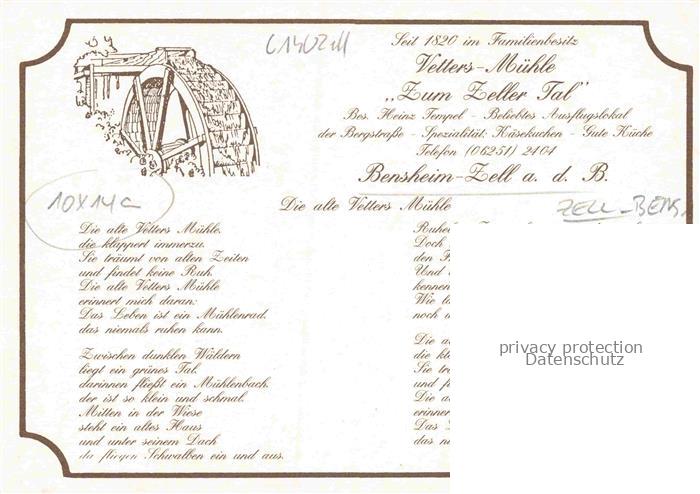 6140 Zell
Seit 1820 im Familienbesitz
Vetters-Mühle
„Zum Zeller Tal"
Bes. Heinz Tempel - Beliebtes Ausflugslokal
der Bergstraße - Spezialität: Käsekuchen - Gute Küche
Telefon (06251) 2404
Bensheim-Zell a. d. B.
10X14c
Die alte Vetters Mühle
ZELL-BENS
Die alte Vetters Mühle,
die klappert immerzu.
Sie träumt von alten Zeiten
und findet keine Ruh.
Die alte Vetters Mühle
erinnert mich daran:
Das Leben ist ein Mühlenrad,
das niemals ruhen kann.
Zwischen dunklen Wäldern
liegt ein grünes Tal,
darinnen fließt ein Mühlenbach,
der ist so klein und schmal.
Mitten in der Wiese
steht ein altes Haus
und unter seinem Dach
da fliegen Schwalben ein und aus.
Doch
den
Und
kennen
Wie
noch
Die
die
Sie
und
Die
erinner
Das
das
privacy protection
Datenschutz